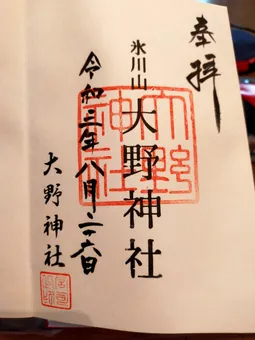 奉拝
氷川山
大野神社
大野
神社
令和三年八月二十六日
大野神社